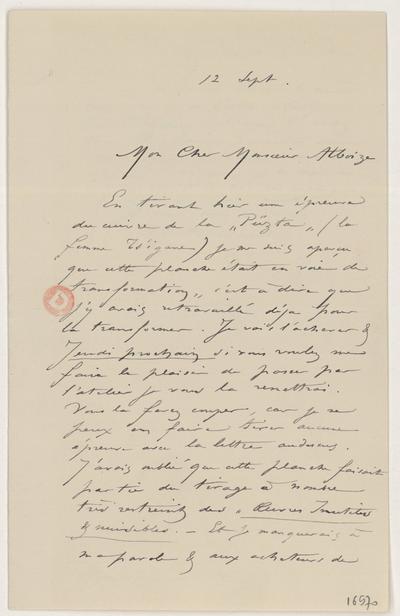 12 Sept.
Mon Cher Monsieur Alboize
En tirant hier une épreuve
du cuivre de la „Püzta„ (la
femme Tsigane) je me suis aperçu
que cette planche était en voie de
transformation„ c'est à dire que
j'y avais retravaillé déja pour
la transformer. Je vais l'achever &
Jeudi prochain si vous voulez me
faire le plaisir de passer par
l'atelier je vous la remettrai.
Vous la ferez couper, car je ne
peux en faire tirer aucune
épreuve avec la lettre au dessous.
J'avais oublié que cette planche faisait
partie du tirage à nombre
très restreint des „Œuvres Inutiles
& nuisibles. — Et je manquerais à
ma parole & aux acheteurs de
16570